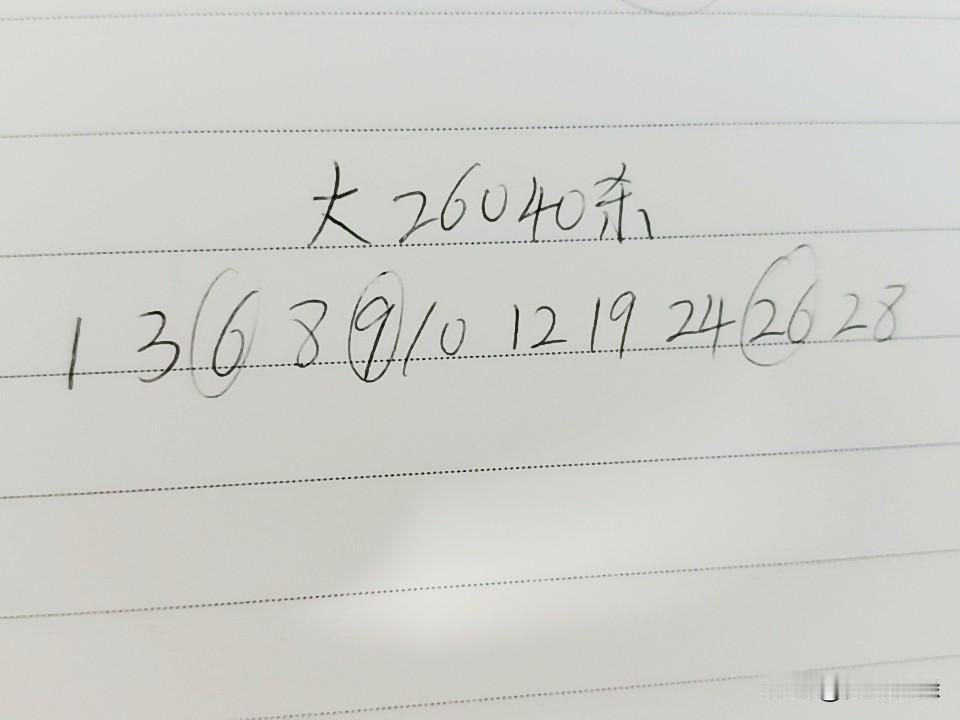 大26040杀
1 3 6 8 9 10 12 19 24 26 28